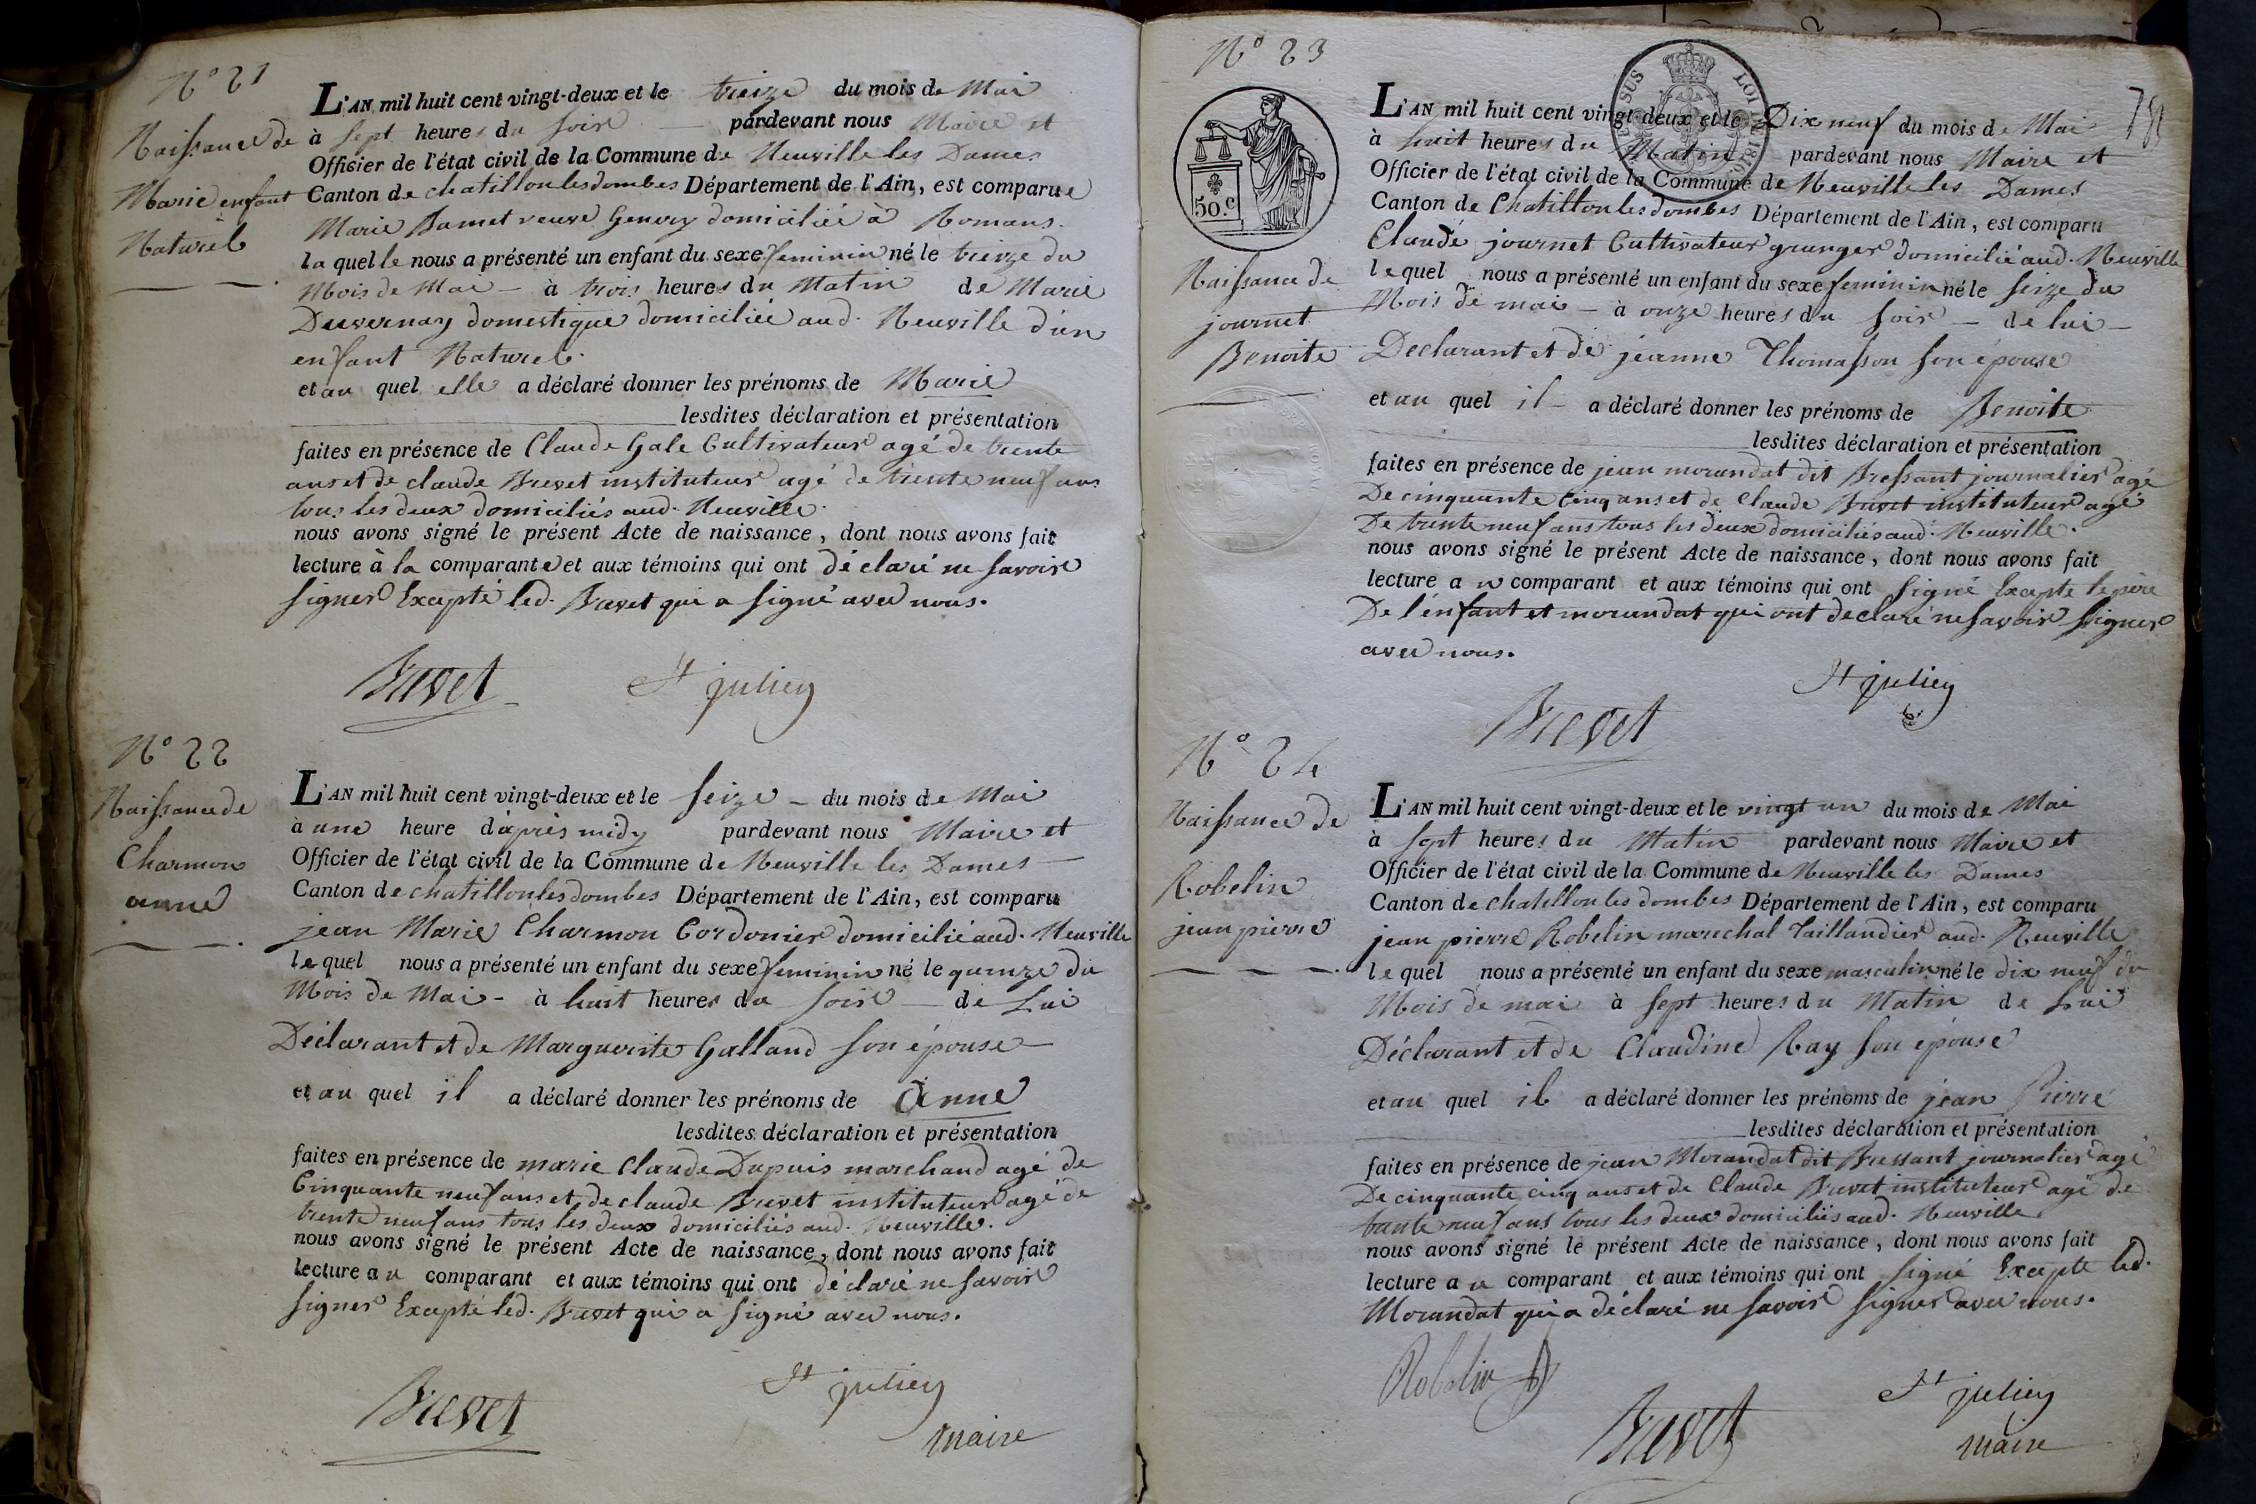 N° 21
Naissance de
Marie enfant
Naturel
L'AN mil huit cent vingt-deux et le treize du mois de Mai
à sept heures du soir pardevant nous Maire et
Officier de l'état civil de la Commune de Neuville les Dames
Canton de chatillon les dombes Département de l'Ain, est comparue
Marie Bamet veuve Genvey domiciliée à Romans.
la quelle nous a présenté un enfant du sexe feminin né le treize du
Mois de Mai à trois heures du Matin de Marie
Duvernay domestique domiciliée aud. Neuville d'un
enfant Naturel.
et au quel elle a déclaré donner les prénoms de Marie
lesdites déclaration et présentation
faites en présence de Claude Gale Cultivateur agé de trente
ans et de claude Brevet instituteur agé de trente neuf ans
tous les deux domiciliés aud. Neuville.
nous avons signé le présent Acte de naissance, dont nous avons fait
lecture à la comparante et aux témoins qui ont déclaré ne savoir
signer Excepté led. Brevet qui a signé avec nous.
Brevet St julien
N° 22
Naissance de
Charmon
anne
L'AN mil huit cent vingt-deux et le seize du mois de Mai
à une heure d'après midy pardevant nous Maire et
Officier de l'état civil de la Commune de Neuville les Dames
Canton de chatillon les dombes Département de l'Ain, est comparu
jean Marie Charmon Cordonier domicilié aud. Neuville
le quel nous a présenté un enfant du sexe feminin né le quinze du
Mois de Mai à huit heures du soir de Lui
Déclarant et de Marguerite Galland son épouse
et au quel il a déclaré donner les prénoms de Anne
lesdites déclaration et présentation
faites en présence de marie Claude Dupuis marchand agé de
Cinquante neuf ans et de claude Brevet instituteur agé de
trente neuf ans tous les deux domiciliés aud. Neuville.
nous avons signé le présent Acte de naissance, dont nous avons fait
lecture au comparant et aux témoins qui ont déclaré ne savoir
signer Excepté led. Brevet qui a signé avec nous.
Brevet St julien
maire
N° 23
50.c
LOI DE 1816
Naissance de
journet
Benoite
L'AN mil huit cent vingt-deux et le Dix neuf du mois de Mai
à huit heures du Matin pardevant nous Maire et
Officier de l'état civil de la Commune de Neuville les Dames
Canton de Chatillon les dombes Département de l'Ain, est comparu
Claude journet Cultivateur granger domicilié aud. Neuville
le quel nous a présenté un enfant du sexe feminin né le seize du
Mois de mai à onze heures du soir de lui
Declarant et de jeanne Thomasson son épouse
et au quel il a déclaré donner les prénoms de Benoite
lesdites déclaration et présentation
faites en présence de jean morandat dit Bressant journalier agé
De cinquante cinq ans et de Claude Brevet instituteur agé
De trente neuf ans tous les deux domiciliés aud. Neuville.
nous avons signé le présent Acte de naissance, dont nous avons fait
lecture au comparant et aux témoins qui ont signé Excepté le père
De l'enfant et morandat qui ont declaré ne savoir signer
avec nous.
St julien
Brevet
N° 24
Naissance de
Robelin
jean pierre
L'AN mil huit cent vingt-deux et le vingt un du mois de Mai
à sept heures du Matin pardevant nous Maire et
Officier de l'état civil de la Commune de Neuville les Dames
Canton de chatillon les dombes Département de l'Ain, est comparu
jean pierre Robelin marechal Taillandier aud. Neuville
le quel nous a présenté un enfant du sexe masculin né le dix neuf du
Mois de mai à sept heures du Matin de Lui
Déclarant et de Claudine Ray son épouse
et au quel il a déclaré donner les prénoms de jean Pierre
lesdites déclaration et présentation
faites en présence de jean Morandat dit Bressant journalier agé
De cinquante cinq ans et de Claude Brevet instituteur agé de
trante neuf ans tous les deux domiciliés aud. Neuville
nous avons signé le présent Acte de naissance, dont nous avons fait
lecture au comparant et aux témoins qui ont signé Excepté led.
Morandat qui a déclaré ne savoir signer avec nous.
Robelin
Brevet St julien
maire